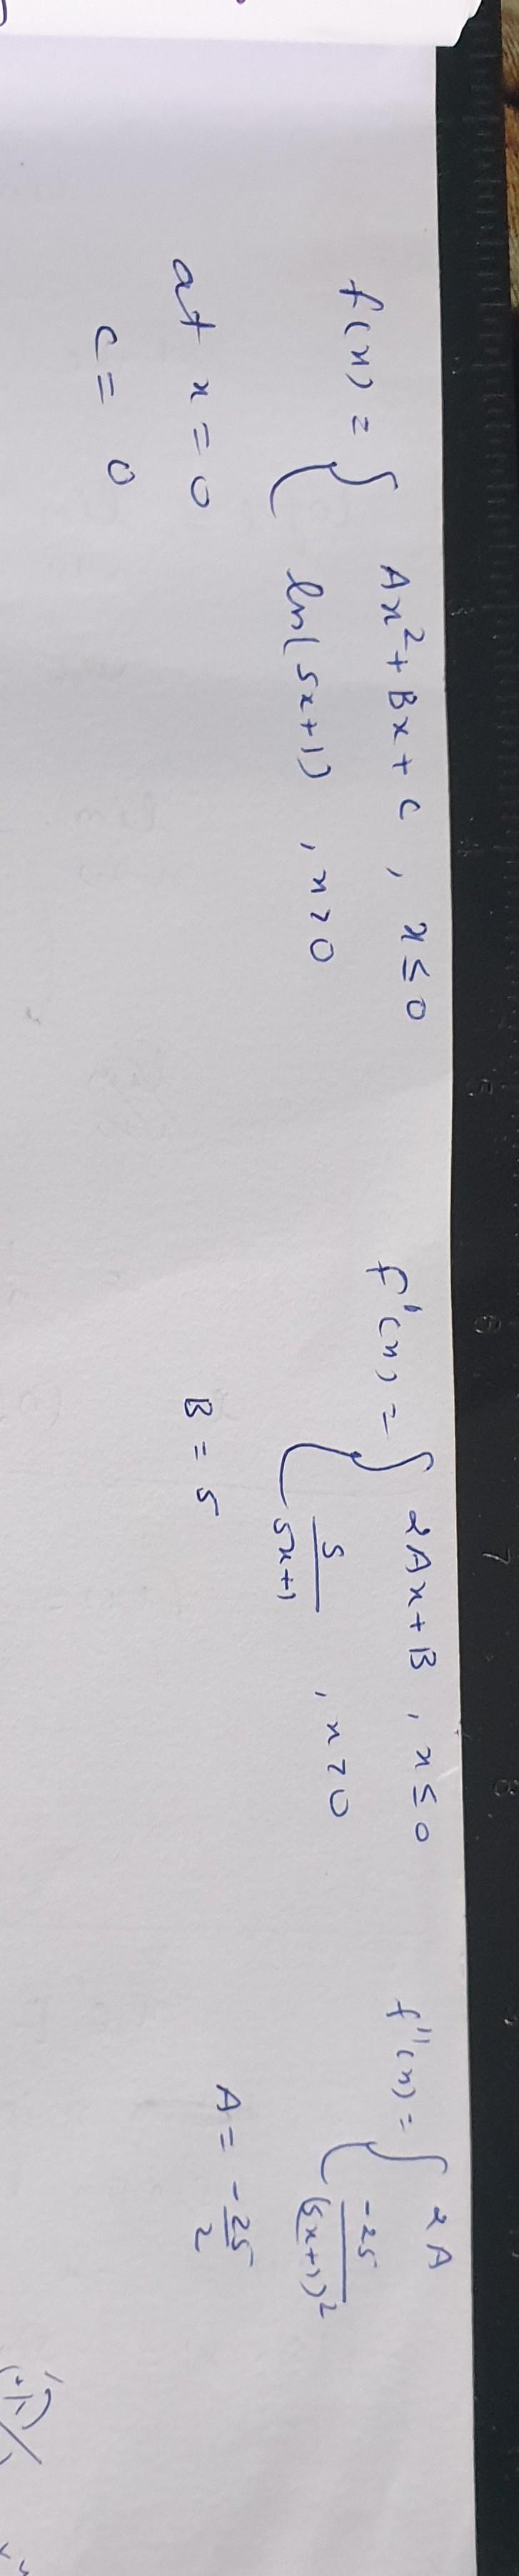 f(x) = { Ax² + Bx + C , x ≤ 0
ln(5x+1) , x > 0
at x = 0
C = 0
f'(x) = { 2Ax + B , x ≤ 0
5/(5x+1) , x > 0
B = 5
f''(x) = { 2A
-25/(5x+1)²
A = -25/2
5
6
7
8